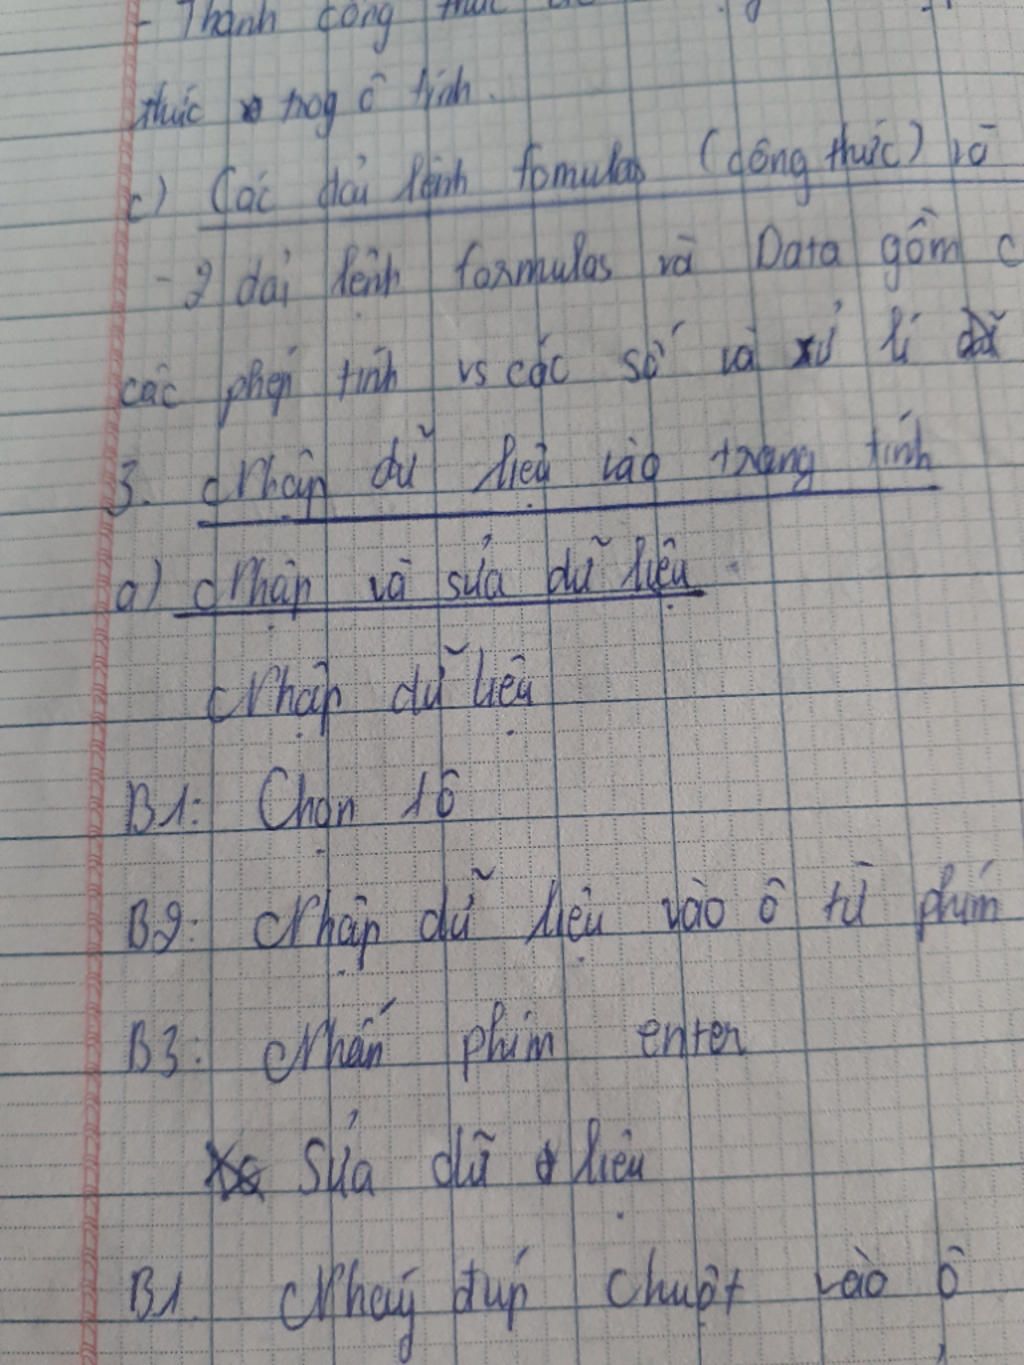 - Thanh công thức
thức trog ô tính.
c) Các dải lệnh fomulas (công thức) và
- 2 dải lệnh formulas và Data gồm c
các phép tính vs các số và xử lí dữ
3. Nhập dữ liệu vào trang tính
a) Nhập và sửa dữ liệu
Nhập dữ liệu
B1: Chọn 1 ô
B2: Nhập dữ liệu vào ô từ phím
B3: Nhấn phím enter
Sửa dữ liệu
B1. Nháy đúp chuột vào ô